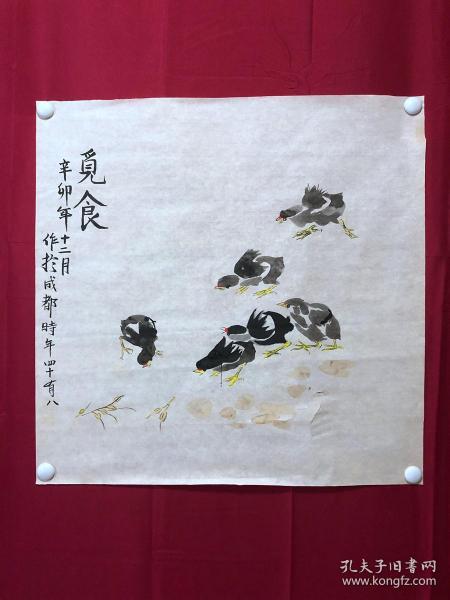 觅食
辛卯年十二月
作於成都時年四十有八
孔夫子旧书网
www.kongfz.com